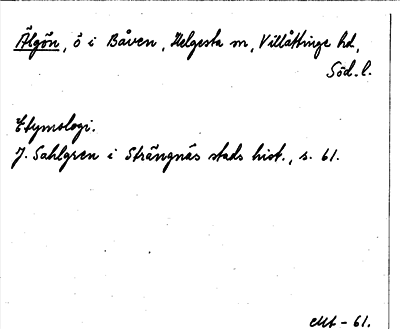 Älgön, ö i Båven, Helgesta sn, Villåttinge hd,
Söd.l.
Etymologi.
J. Sahlgren i Strängnäs stads hist., s. 61.
-61.